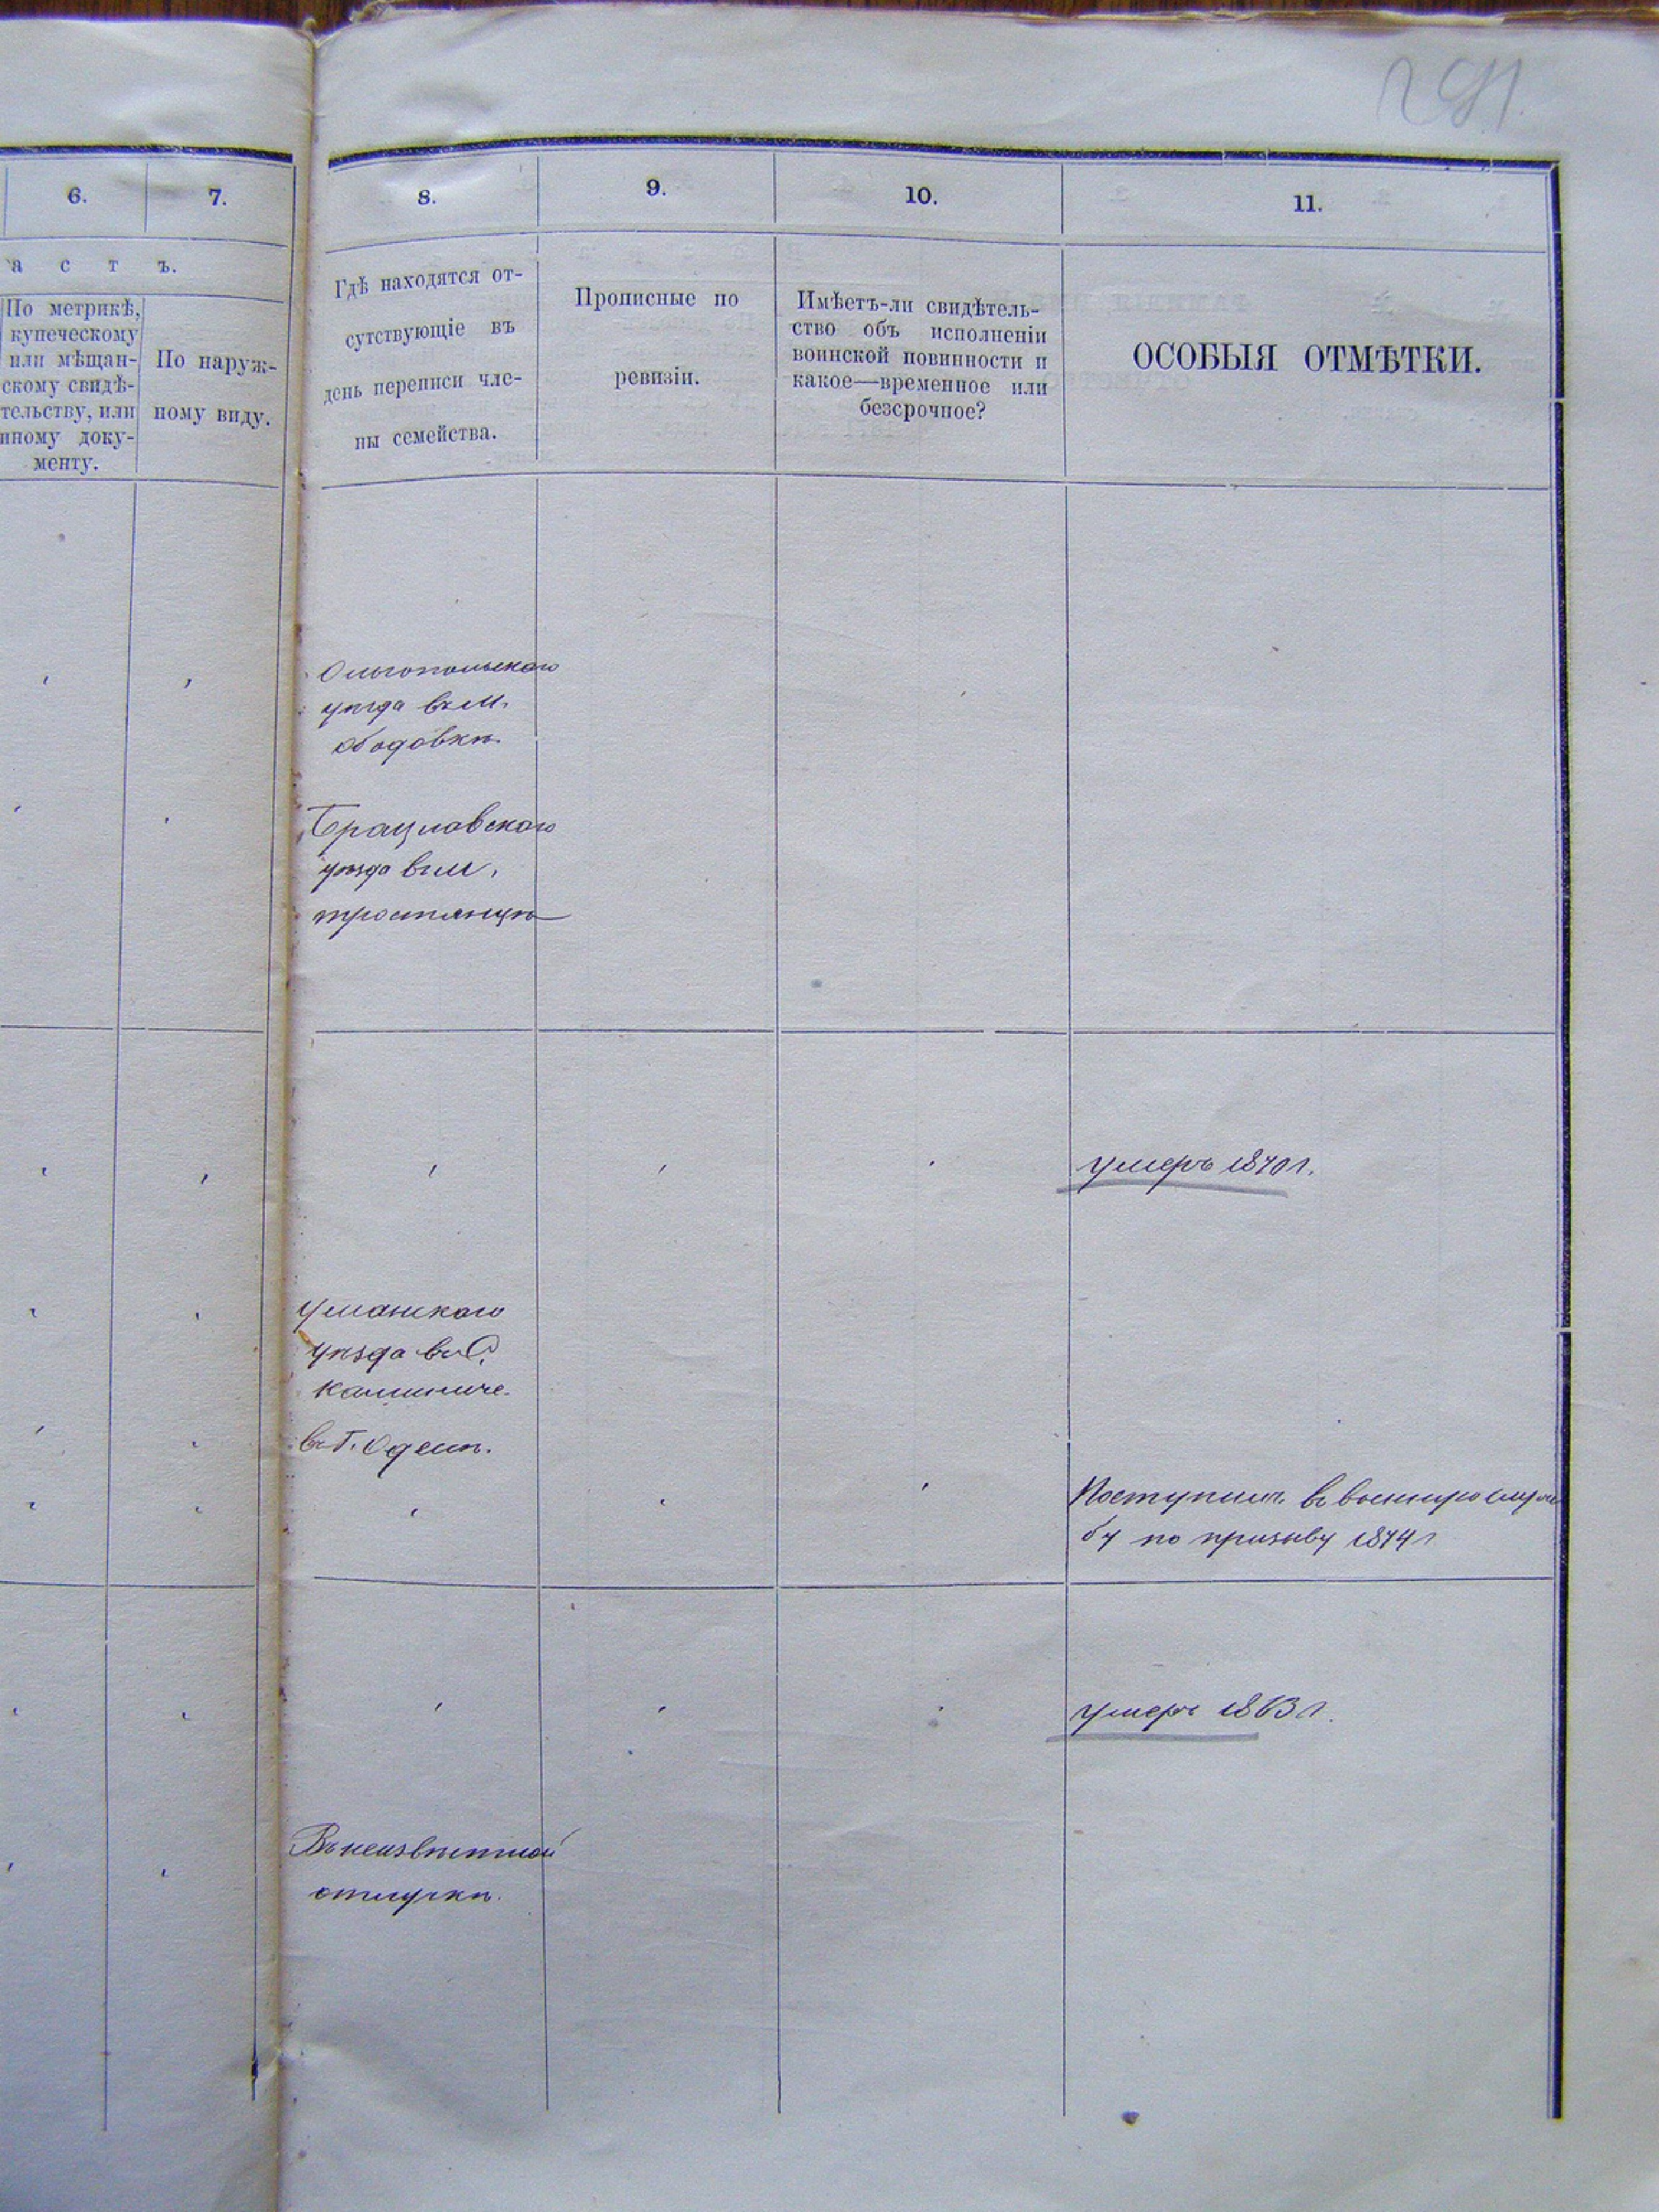 291
6.
7.
8.
9.
10.
11.
а с т ъ.
По метрикѣ,
купеческому
или мѣщан-
скому свидѣ-
тельству, или
иному доку-
менту.
По наруж-
ному виду.
Гдѣ находятся от-
сутствующіе въ
день переписи чле-
ны семейства.
Прописные по
ревизіи.
Имѣетъ-ли свидѣтель-
ство объ исполненіи
воинской повинности и
какое—временное или
безсрочное?
ОСОБЫЯ ОТМѢТКИ.
Ольгопольскаго
уѣзда въ м.
Ободовкѣ
Брацлавскаго
уѣзда въ м.
тростянцѣ
умеръ 1870 г.
Уманскаго
уѣзда въ С.
въ Г. Одессѣ.
Поступилъ въ военную служ
бу по призыву 1874 г
умеръ 1863 г.
Въ неизвѣстной
отлучкѣ.